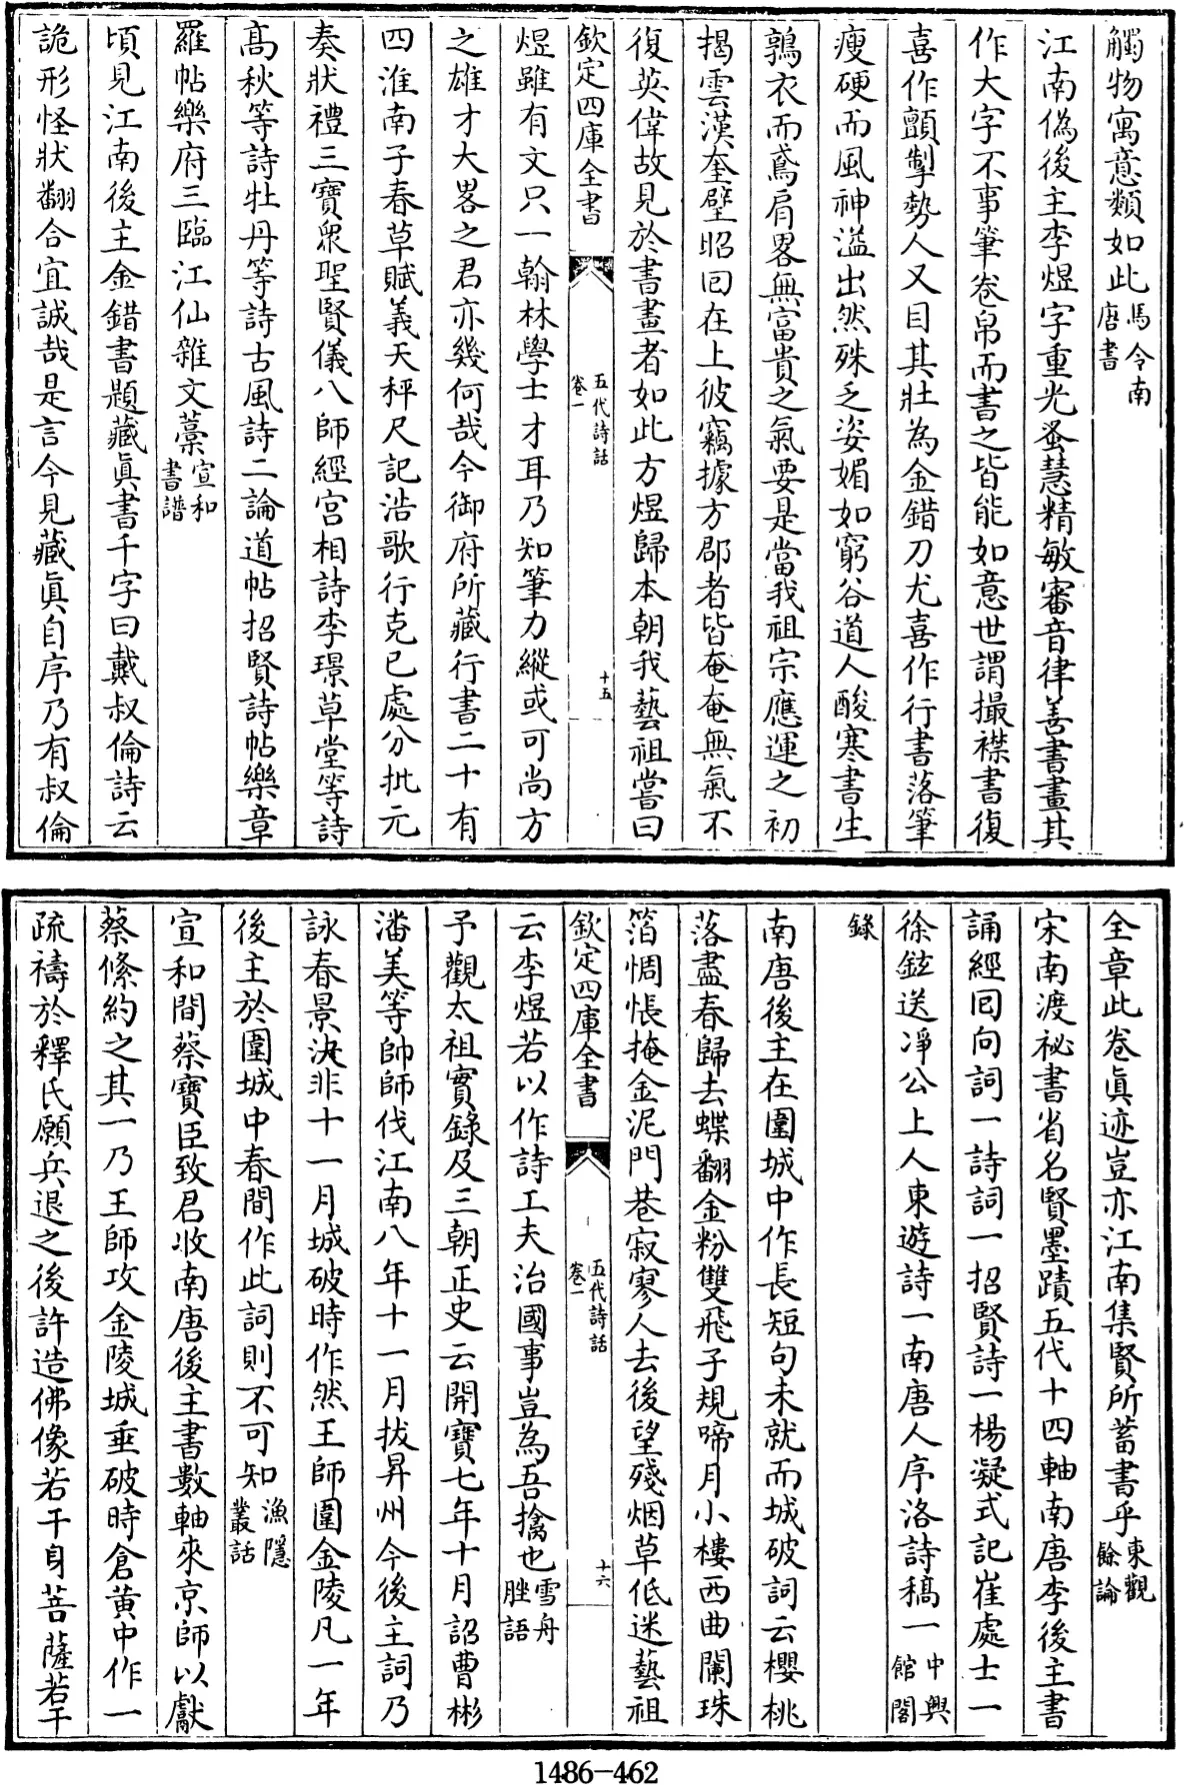 觸物寓意類如此馬令南唐書
江南偽後主李煜字重光蚤慧精敏審音律善書畫其
作大字不事筆卷帛而書之皆能如意世謂撮襟書復
喜作顫掣勢人又目其壯為金錯刀尤喜作行書落筆
瘦硬而風神溢出然殊乏姿媚如窮谷道人酸寒書生
鶉衣而鳶肩畧無富貴之氣要是當我祖宗應運之初
揭雲漢奎璧昭囘在上彼竊據方郡者皆奄奄無氣不
復英偉故見於書畫者如此方煜歸本朝我藝祖嘗曰
欽定四庫全書
五代詩話
卷一
十五
煜雖有文只一翰林學士才耳乃知筆力縱或可尚方
之雄才大畧之君亦幾何哉今御府所藏行書二十有
四淮南子春草賦義天秤尺記浩歌行克已處分批元
奏狀禮三寶眾聖賢儀八師經宫相詩李璟草堂等詩
高秋等詩牡丹等詩古風詩二論道帖招賢詩帖樂章
羅帖樂府三臨江仙雜文藁宣和書譜
頃見江南後主金錯書題藏眞書千字曰戴叔倫詩云
詭形怪狀翻合宜誠哉是言今見藏眞自序乃有叔倫
全章此卷眞迹豈亦江南集賢所蓄書乎東觀餘論
宋南渡祕書省名賢墨蹟五代十四軸南唐李後主書
誦經囘向詞一詩詞一招賢詩一楊凝式記崔處士一
徐鉉送凈公上人東遊詩一南唐人序洛詩稿一中興館閣
錄
南唐後主在圍城中作長短句未就而城破詞云櫻桃
落盡春歸去蝶翻金粉雙飛子規啼月小樓西曲闌珠
箔惆悵掩金泥門巷寂寥人去後望殘烟草低迷藝祖
欽定四庫全書
五代詩話
卷一
十六
云李煜若以作詩工夫治國事豈為吾擒也雪舟脞語
予觀太祖實錄及三朝正史云開寶七年十月詔曹彬
潘美等帥師伐江南八年十一月拔昇州今後主詞乃
詠春景決非十一月城破時作然王師圍金陵凡一年
後主於圍城中春間作此詞則不可知漁隱叢話
宣和間蔡寶臣致君收南唐後主書數軸來京師以獻
蔡絛約之其一乃王師攻金陵城垂破時倉黄中作一
疏禱於釋氏願兵退之後許造佛像若干身菩薩若干
1486-462